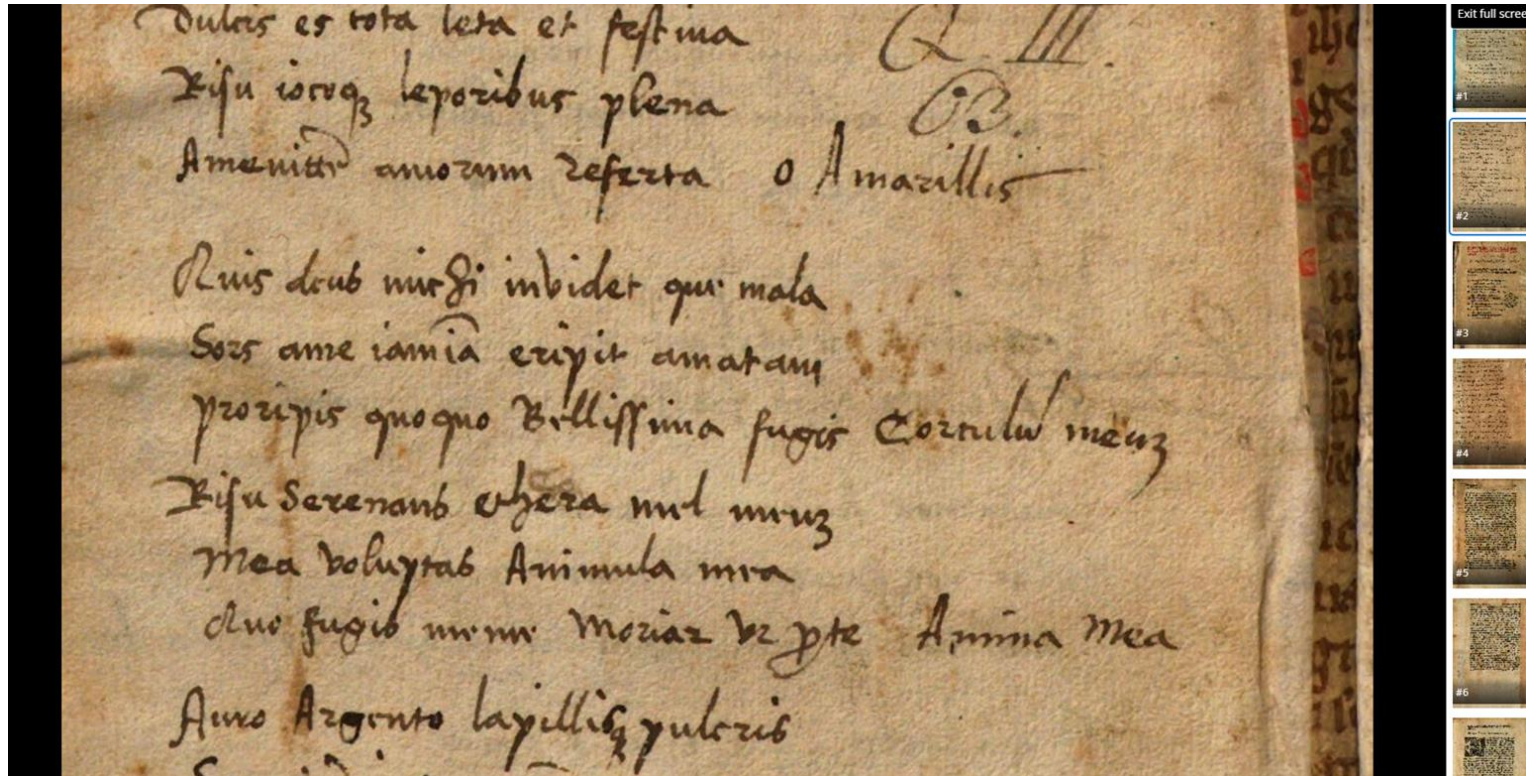 Dulcis es tota leta et festiua
Q. III.
Risu iocoqꝫ leporibus plena
63.
Amenitte᷑ amorum referta o Amarillis
Quis deus michi inbidet que mala
Sors ame iamiā eripit amatam
proripis quoquo Bellissima fugis Corculū meuꝫ
Risu Serenans ethera mel meuꝫ
Mea voluptas Animula mea
Quo fugis meme Moriar vr ꝑte Anima Mea
Auro Argento lapillisqꝫ pulcris
Exit full scree
#1
#2
#3
#4
#5
#6